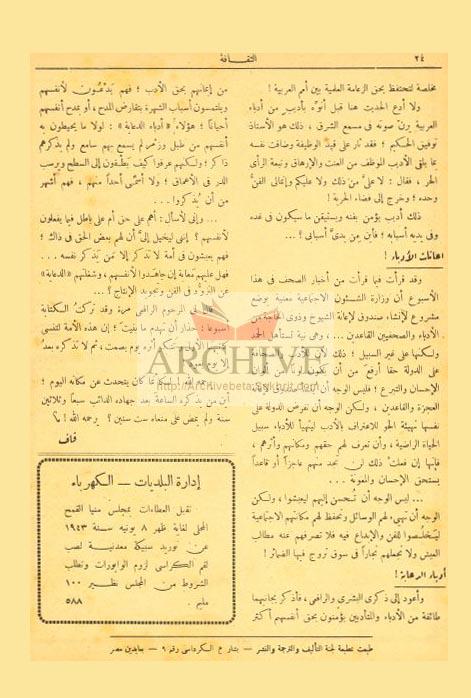 ٢٤
الثقافة
مخلصة لتحتفظ بحق الزعامة العلمية بين أمم العربية !
ولا أدع الحديث هنا قبل أنوّه بأديب من أدباء
العربية يرن صوته في مسمع الشرق ، ذلك هو الأستاذ
توفيق الحكيم ! فقد ثار على قيد الوظيفة وضاقت نفسه
بما يلقى الأديب الموظف من العنت والإرهاق وتبعة الرأى
الحر ، فقال : لا علىّ من ذلك ولا عليكم وإيمانى الفن
وحده ؛ وخرج إلى فضاء الحرية !
ذلك أديب يؤمن بفنه ويستيقن ما سيكون فى غده
وفى يديه أسبابه ؛ فأين من يدىّ أسبابى ؟ ...
إعانات الأدباء !
وقد قرأت فيما قرأت من أخبار الصحف فى هذا
الأسبوع أن وزارة الشئون الاجتماعية معنية بوضع
مشروع لإنشاء صندوق لإعانة الشيوخ وذوى الحاجة من
الأدباء والصحفيين القاعدين ... وهى نية تستأهل الحمد
ولكنها على غير السبيل ؛ ذلك لأن للأدب والصحافة
على الدولة حقا أرفع من أن يكون
الإحسان والتبرع ؛ فليس الوجه أن
العجزة والقاعدين ، ولكن الوجه أن تفرض الدولة على
نفسها تهيئة الجو للاعتراف بالأدب ليتهيأ للأدباء سبيل
الحياة الراضية ، وأن تعرف لهم حقهم ومكانهم وأثرهم ،
فإنها إن فعلت ذلك لن تجد منهم عاجزاً أو قاعداً
يستحق الإحسان والمعونة ...
... ليس الوجه أن تحسن إليهم ليعيشوا ، ولكن
الوجه أن تهيىء لهم الوسائل وتحفظ لهم مكانتهم الاجتماعية
ليتخلصوا للفن والإبداع فيه فلا تصرفهم عنه مطالب
العيش ولا تجعلهم تجاراً فى سوق تروج فيها الضمائر !
أدباء الدعاية !
وأعود إلى ذكرى البشرى والرافعى ، فأذكر بجانبهما
طائفة من الأدباء والمتأدبين يؤمنون بحق أنفسهم أكثر
من إيمانهم بحق الأدب ؛ فهم يدعون لأنفسهم
ويلتمسون أسباب الشهرة بتقارض المدح ، أو بمدح أنفسهم
أحيانا ؛ هؤلاء « أدباء الدعاية » : لولا ما يحيطون به
أنفسهم من طبل وزمر لم يسمع بهم سامع ولم يذكرهم
ذاكر ؛ ولكنهم عرفوا كيف يطفون إلى السطح ويرسب
الدر فى الأعماق ؛ ولا أسمى أحداً منهم ، فهم أشهر
من أن يذكروا ...
... وإنى لأسأل : أهم على حق أم على باطل فيما يفعلون
لأنفسهم ؟ إننى ليخيل إلىّ أن لهم بعض الحق فى ذاك ؛
فهم يعيشون فى أمة لا تذكر إلا من يذكر نفسه ...
فهل عليهم معابة إن جاهدوا لأنفسهم ، وشغلتهم « الدعاية »
عن التزود فى الفن وتجويد الإنتاج ؟ ...
قال لى المرحوم الرافعى مرة وقد تركت الكتابة
أسبوعا : حذار أن تهدم ما بنيت ؛ إن هذه الأمة تنسى
يوم يصمت ، ثم لا تذكره بعد
يرحمه الله !
كان يتحدث عن مكانه اليوم ؛
أين من يذكره الساعة بعد جهاده الدائب سبعاً وثلاثين
سنة ولم يمض على منعاه ست سنين ؟ يرحمه الله !
قاف
ARCHIVE
http://Archivebeta.Sakhrit.com
إدارة البلديات — الكهرباء
تقبل العطاءات بمجلس منيا القمح
المحلى لغاية ظهر ٨ يونيه سنة ١٩٤٣
عن توريد سبيكة معدنية لصب
لقم الكراسى لزوم الوابورات وتطلب
الشروط من المجلس نظير ١٠٠
مليم .
٥٨٨
طبعت بمطبعة لجنة التأليف والترجمة والنشر — بشارع الكرداسى رقم ٩ — بعابدين مصر